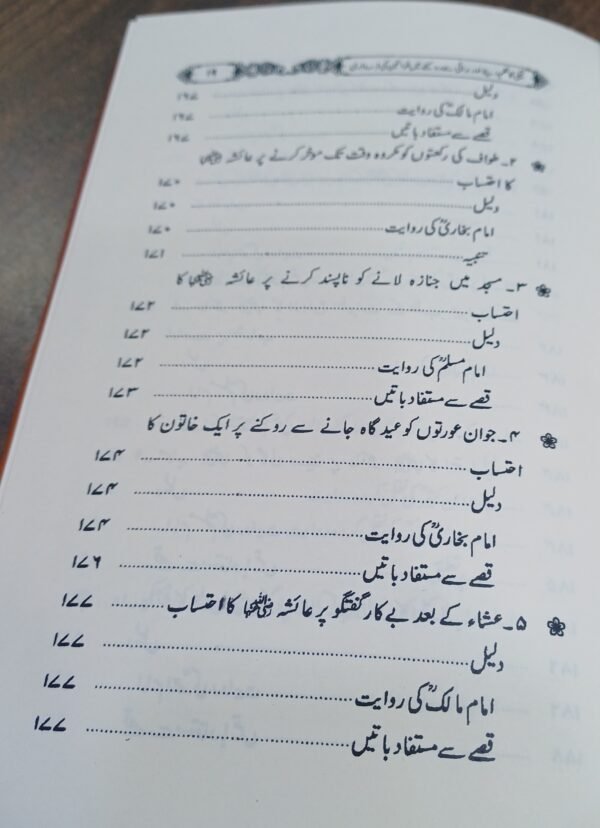 ۱۹
دلیل ۱۶۷
امام مالکؒ کی روایت ۱۶۷
قصے سے مستفاد باتیں ۱۶۷
۲۔ طواف کی رکعتوں کو مکروہ وقت تک موخر کرنے پر عائشہ رضی اللہ عنہا
کا احتساب ۱۷۰
دلیل ۱۷۰
امام بخاریؒ کی روایت ۱۷۰
تنبیہ ۱۷۱
۳۔ مسجد میں جنازہ لانے کو ناپسند کرنے پر عائشہ رضی اللہ عنہا کا
احتساب ۱۷۲
دلیل ۱۷۲
امام مسلمؒ کی روایت ۱۷۲
قصے سے مستفاد باتیں ۱۷۳
۴۔ جوان عورتوں کو عید گاہ جانے سے روکنے پر ایک خاتون کا
احتساب ۱۷۴
دلیل ۱۷۴
امام بخاریؒ کی روایت ۱۷۴
قصے سے مستفاد باتیں ۱۷۶
۵۔ عشاء کے بعد بے کار گفتگو پر عائشہ رضی اللہ عنہا کا احتساب ۱۷۷
دلیل ۱۷۷
امام مالکؒ کی روایت ۱۷۷
قصے سے مستفاد باتیں ۱۷۷